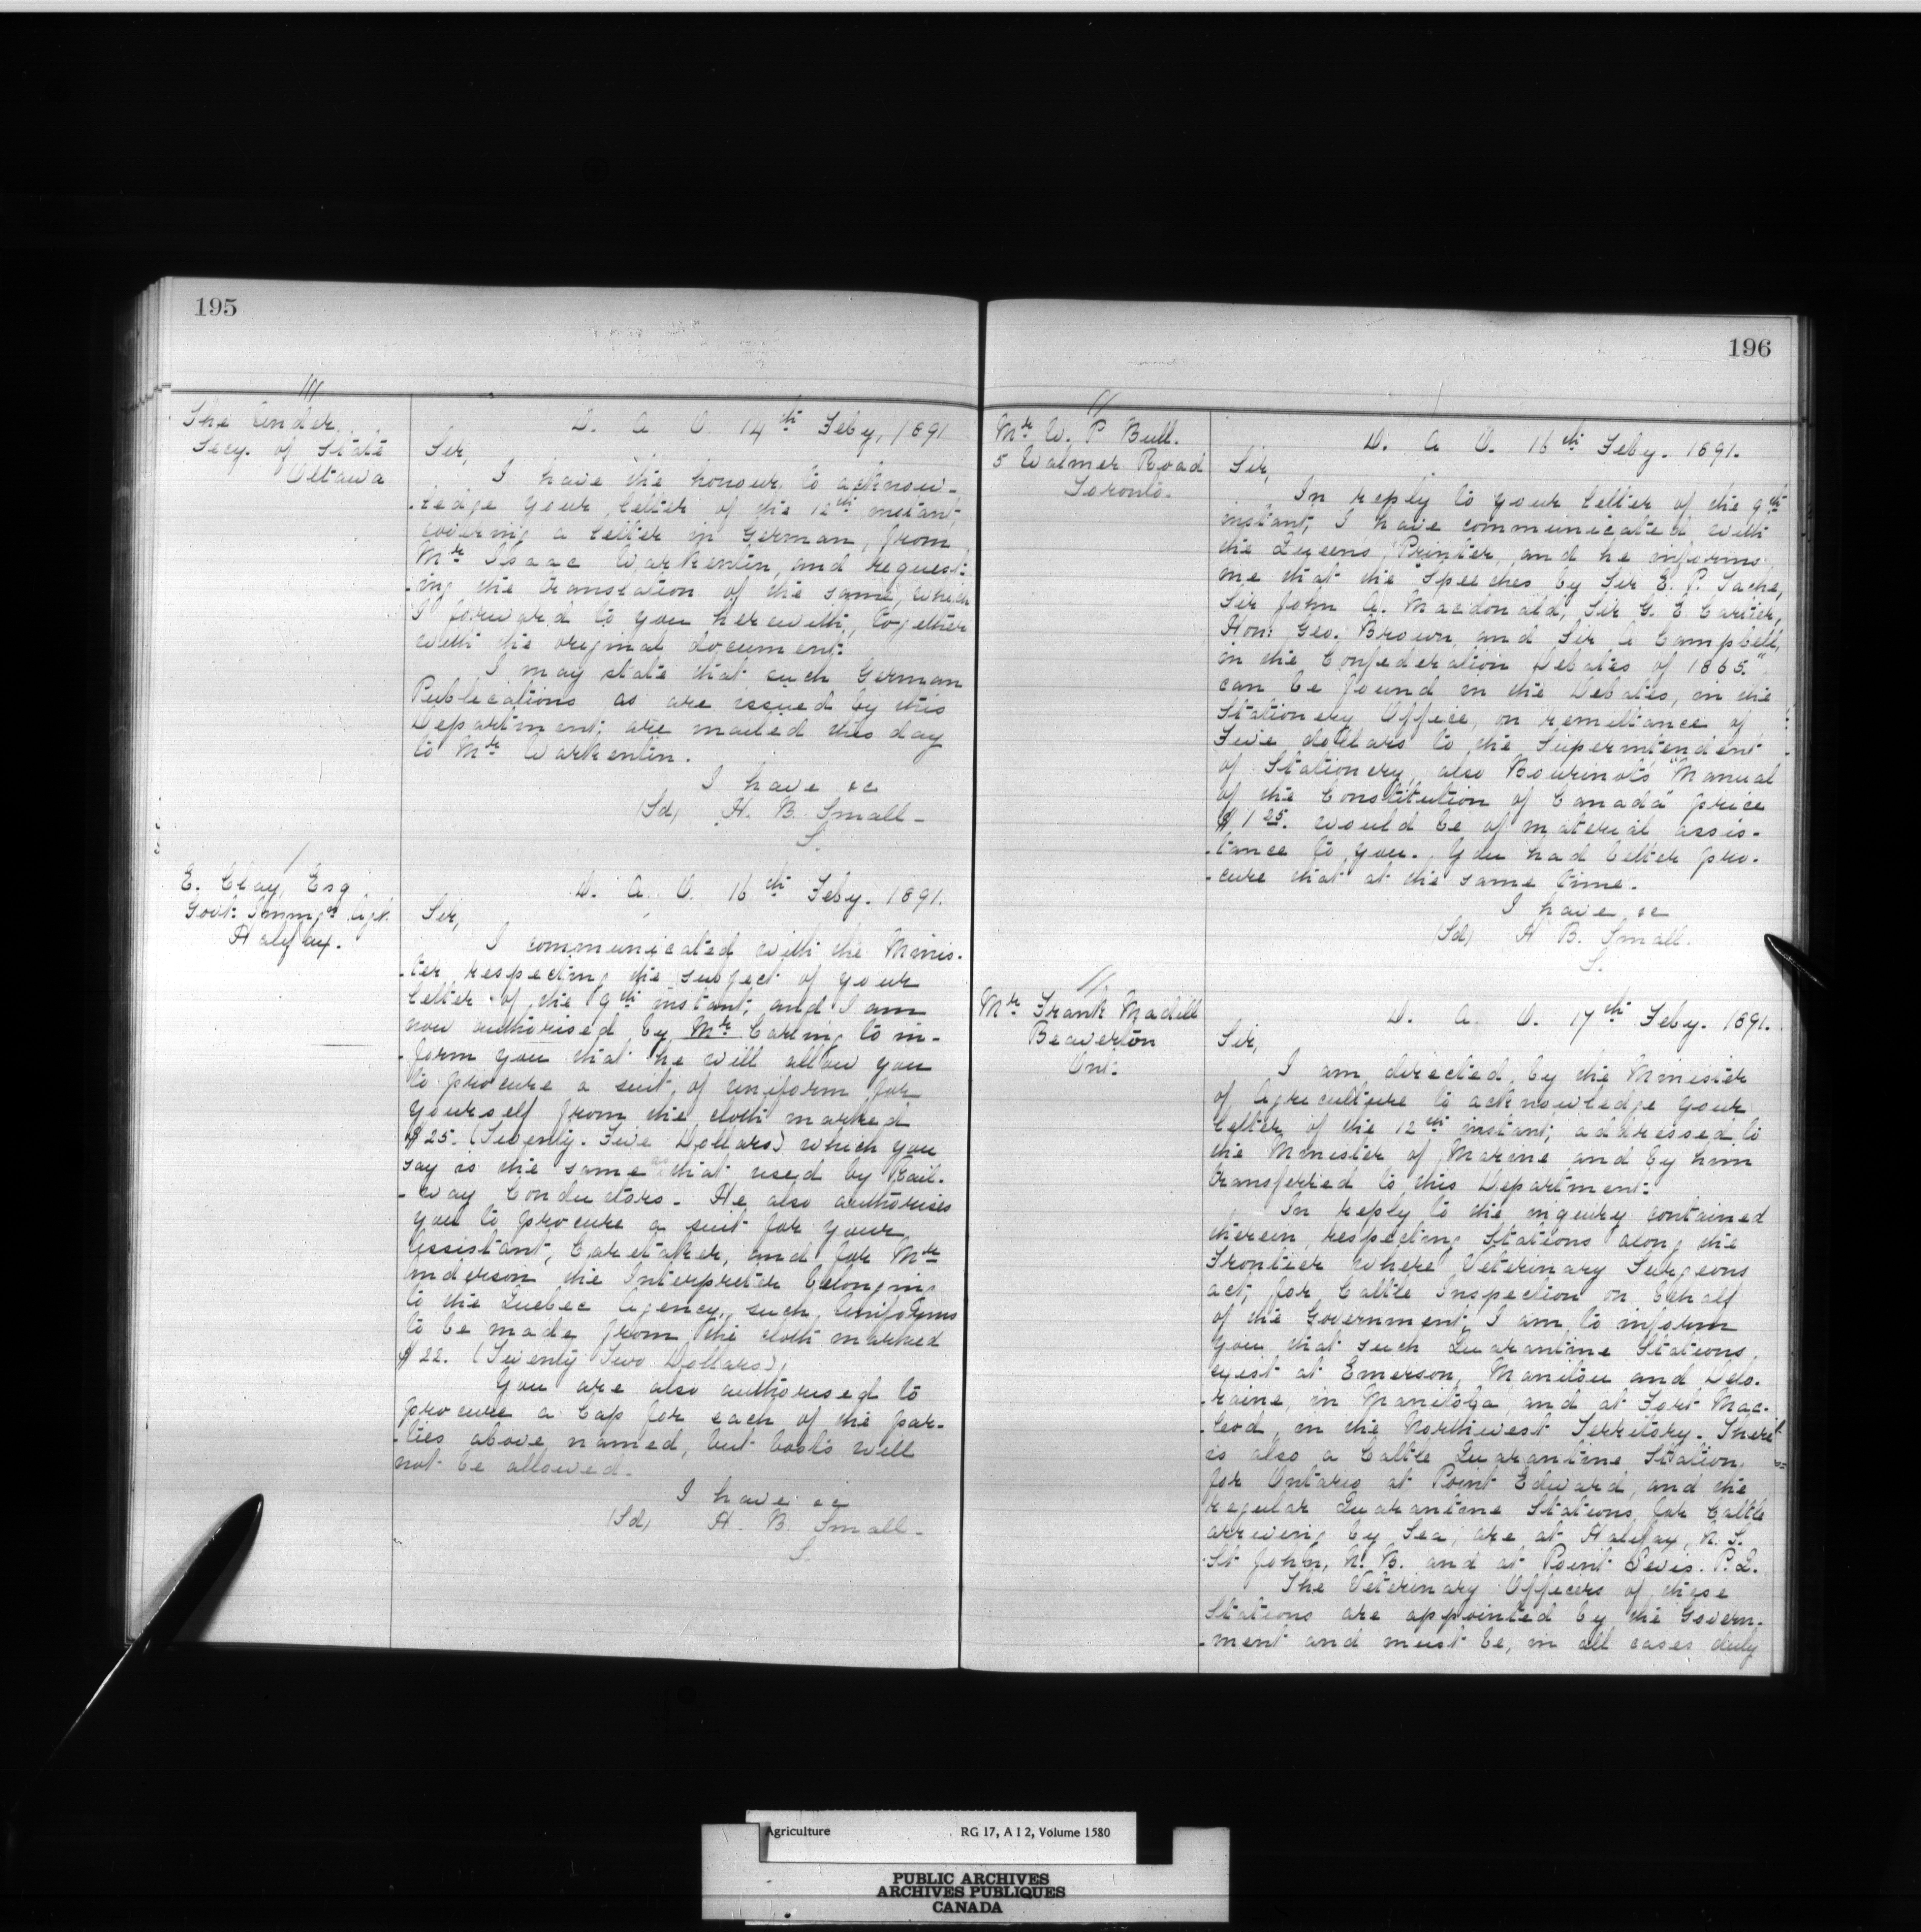 195
///
The Under
Secy. of State
Ottawa
D. A. O. 14th Feby, 1891
Sir,
I have the honour to acknow-
-ledge your letter of the 12th instant,
covering a letter in German, from
Mr Isaac Warkentin, and request-
-ing the translation of the same, which
I forward to you herewith, together
with the original document.
I may state that such German
Publications as are issued by this
Department, are mailed this day
to Mr Warkentin.
I have &c
(Sd) H. B. Small-
S.
/
E. Clay, Esq
Govt. Immgn Agt.
Halifax.
D. A. O. 16th Feby. 1891.
Sir,
I communicated with the Minis-
-ter respecting the subject of your
letter of the 9th instant, and I am
now authorised by Mr Carling to in-
-form you that he will allow you
to procure a suit of uniform for
yourself from the cloth marked
$25. (Twenty-Five Dollars) which you
say is the same as that used by Rail-
-way Conductors- He also authorises
you to procure a suit for your
Assistant, Caretaker, and for Mr
Anderson the Interpreter belonging
to the Quebec Agency, such Uniforms
to be made from the cloth marked
$22. (Twenty Two Dollars),
You are also authorised to
procure a Cap for each of the par-
-ties above named, but boots will
not be allowed.
I have &c
(Sd) H. B. Small-
S.
196
//
Mr W. P Bull.
5 Walmer Road
Toronto.
D. A. O. 16th Feby. 1891.
Sir,
In reply to your letter of the 9th
instant, I have communicated with
the Queen's Printer, and he informs
me that the "Speeches by Sir E. P. Tache,
Sir John A. Macdonald, Sir G. E Cartier,
Hon: Geo. Brown, and Sir A Campbell,
in the Confederation Debates of 1865."
can be found in the Debates, in the
Stationery Office, on remittance of
Five dollars to the Superintendent
of Stationery, also Bourinot's "Manual
of the Constitution of Canada" price
$1 25. would be of material assis-
-tance to you. You had better pro-
-cure that at the same time.
I have &c
(Sd) H B. Small.
S.
//
Mr Frank Madill
Beaverton
Ont.
D. A. O. 17th Feby. 1891.
Sir,
I am directed by the Minister
of Agriculture to acknowledge your
letter of the 12th instant, addressed to
the Minister of Marine and by him
transferred to this Department.
In reply to the inquiry contained
therein, respecting Stations along the
Frontier where Veterinary Surgeons
act, for Cattle Inspection on behalf
of the Government, I am to inform
you that such Quarantine Stations
exist at Emerson, Manitou and Delo-
-raine, in Manitoba, and at Fort Mac-
-leod, in the Northwest Territory. There
is also a Cattle Quarantine Station,
for Ontario at Point Edward, and the
regular Quarantine Stations for Cattle
arriving by Sea, are at Halifax, N. S.
St John, N. B. and at Point Levis. P.Q.
The Veterinary Officers of these
Stations are appointed by the Govern-
-ment and must be, in all cases duly
Agriculture RG 17, A I 2, Volume 1580
PUBLIC ARCHIVES
ARCHIVES PUBLIQUES
CANADA